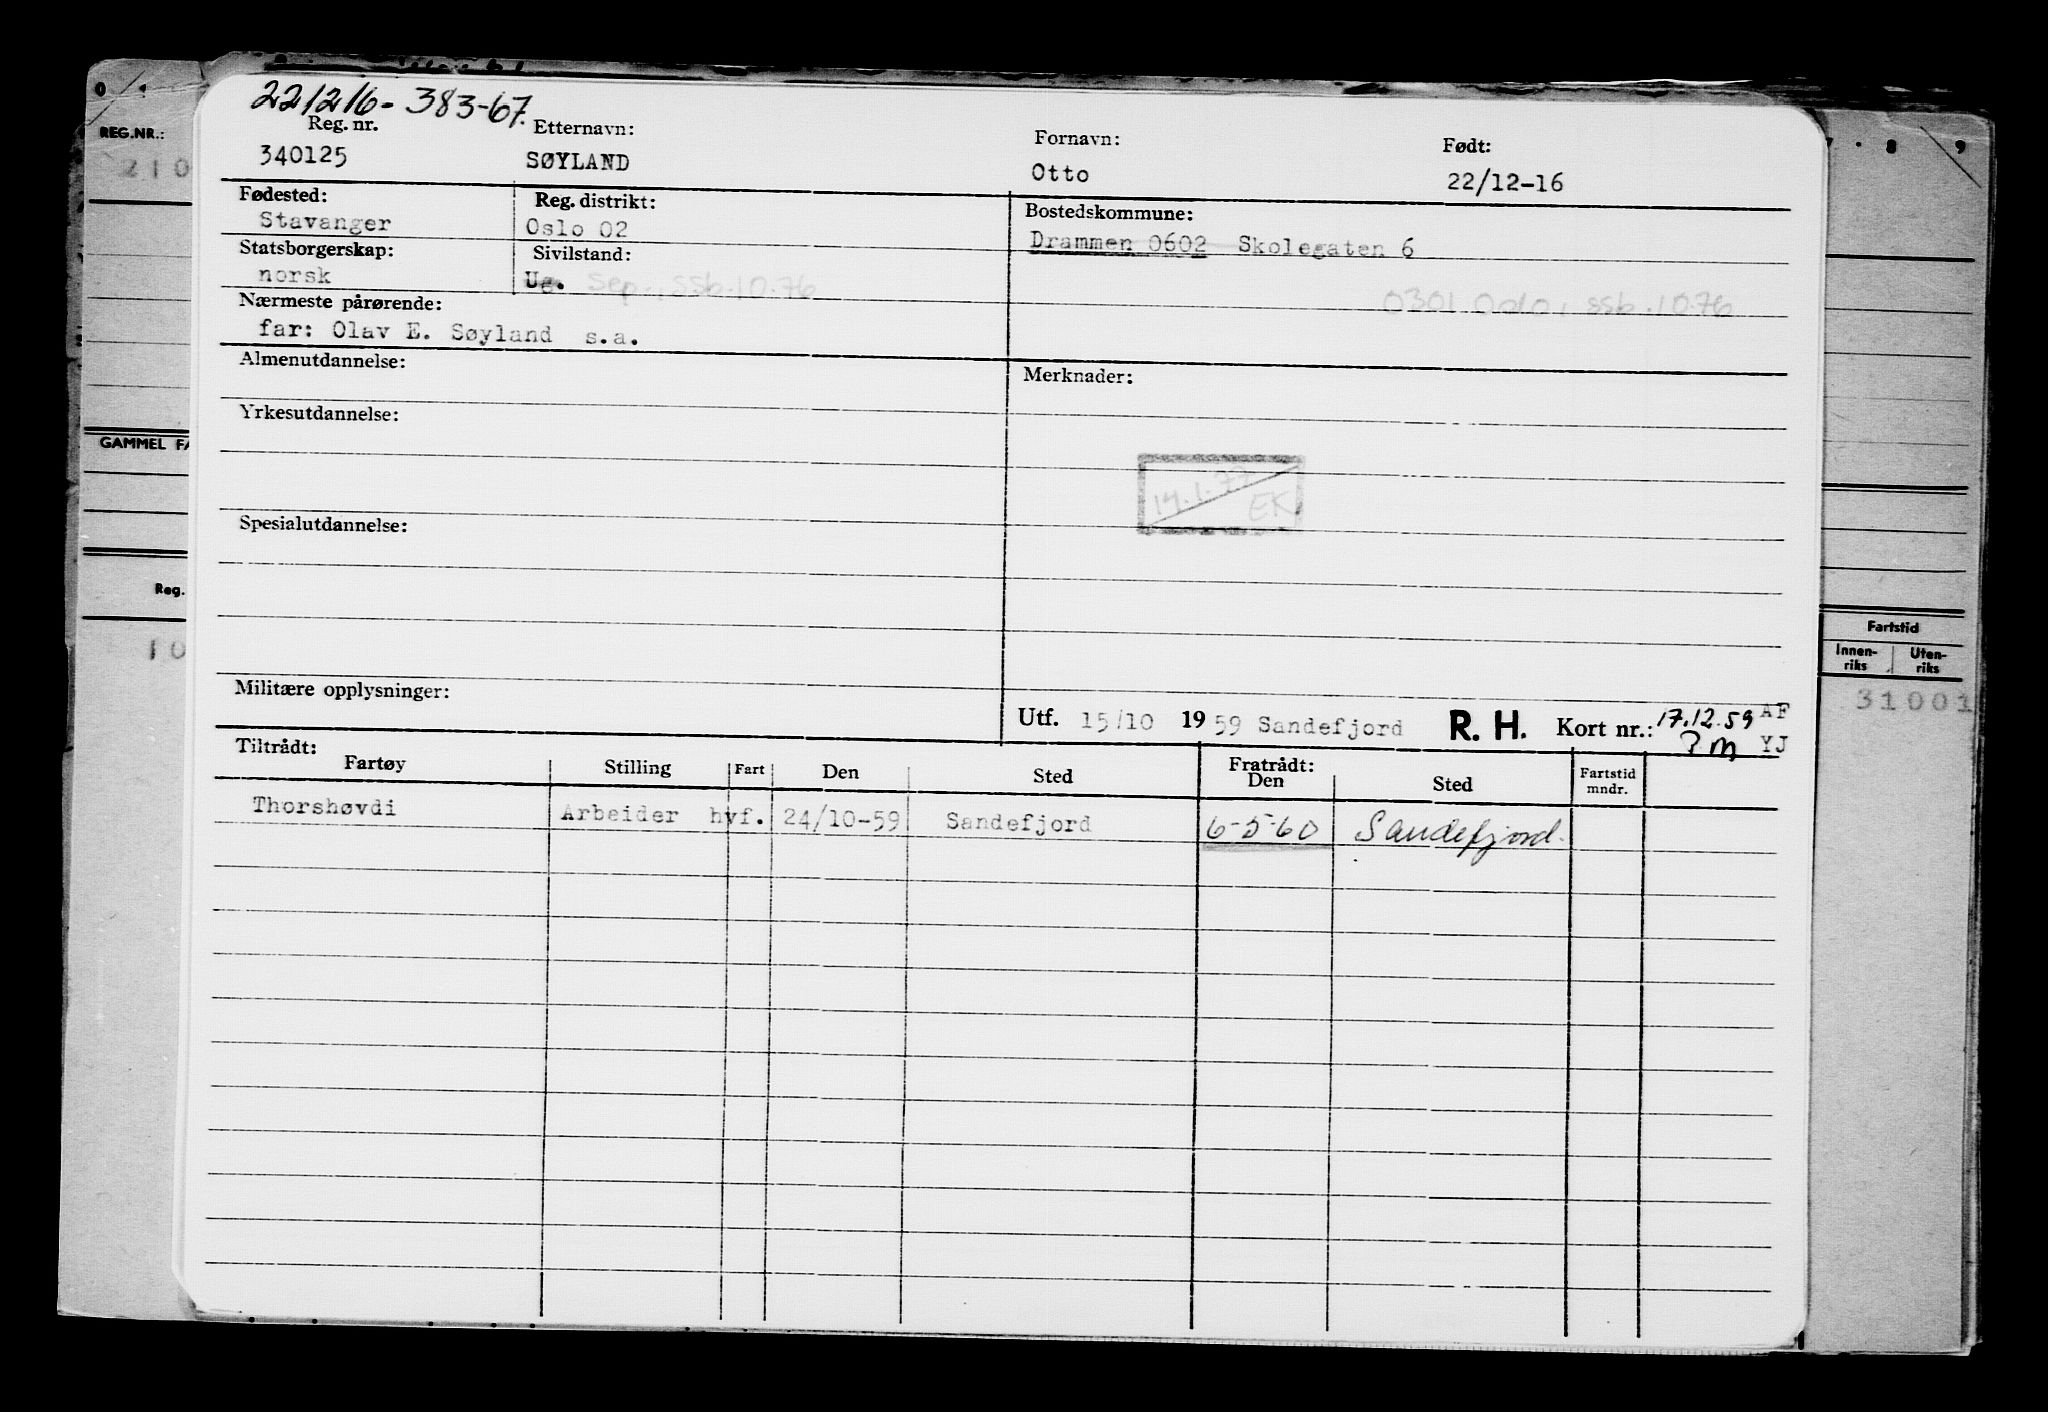 221216-383-67.
Reg. nr. Etternavn: Fornavn: Født:
340125 SØYLAND Otto 22/12-16
Fødested: Reg. distrikt: Bostedskommune:
Stavanger Oslo 02 Drammen 0602 Skolegaten 6
Statsborgerskap: Sivilstand:
norsk Ug. Sep., ssb.10.76 0301 Oslo, ssb.10.76
Nærmeste pårørende:
far: Olav E. Søyland s.a.
Almenutdannelse: Merknader:
Yrkesutdannelse:
14.1.77 EK
Spesialutdannelse:
Militære opplysninger:
Utf. 15/10 1959 Sandefjord R. H. Kort nr.: 17.12.59 AF
YJ
Tiltrådt: Fratrådt:
Fartøy Stilling Fart Den Sted Den Sted Fartstid mndr.
Thorshøvdi Arbeider hvf. 24/10-59 Sandefjord 6-5-60 Sandefjord.
0
REG.NR.:
210
GAMMEL FA
Reg.
10
8 9
Fartstid
Innen-riks Uten-riks
31001